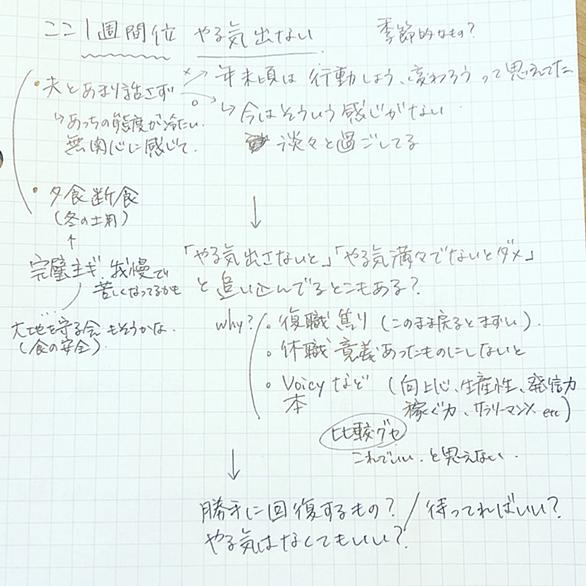 ここ1週間位 やる気出ない 季節的なもの?
・夫とあまり話さず
↳あっちの態度が冷たい。
無関心に感じて。
× → 年末頃は 行動しよう、変わろう って思えてた
○ ↳ 今はそういう感じがない
淡々と過ごしてる
・夕食断食
(冬の土用)
↑
完璧主ギ、我慢で
苦しくなってるかも
…
大地を守る会もそうかな。
(食の安全)
↓
「やる気出さないと」「やる気満々でないとダメ」
と追い込んでるとこもある?
why?
・復職焦り (このまま戻るとまずい)
・休職意義あったものにしないと
・Voicyなど (向上心、生産性、発信力
本 稼ぐ力、サラリーマン× etc)
比較グセ
これでいい と思えない
↓
勝手に回復するもの? / 待ってればいい?
やる気はなくてもいい?